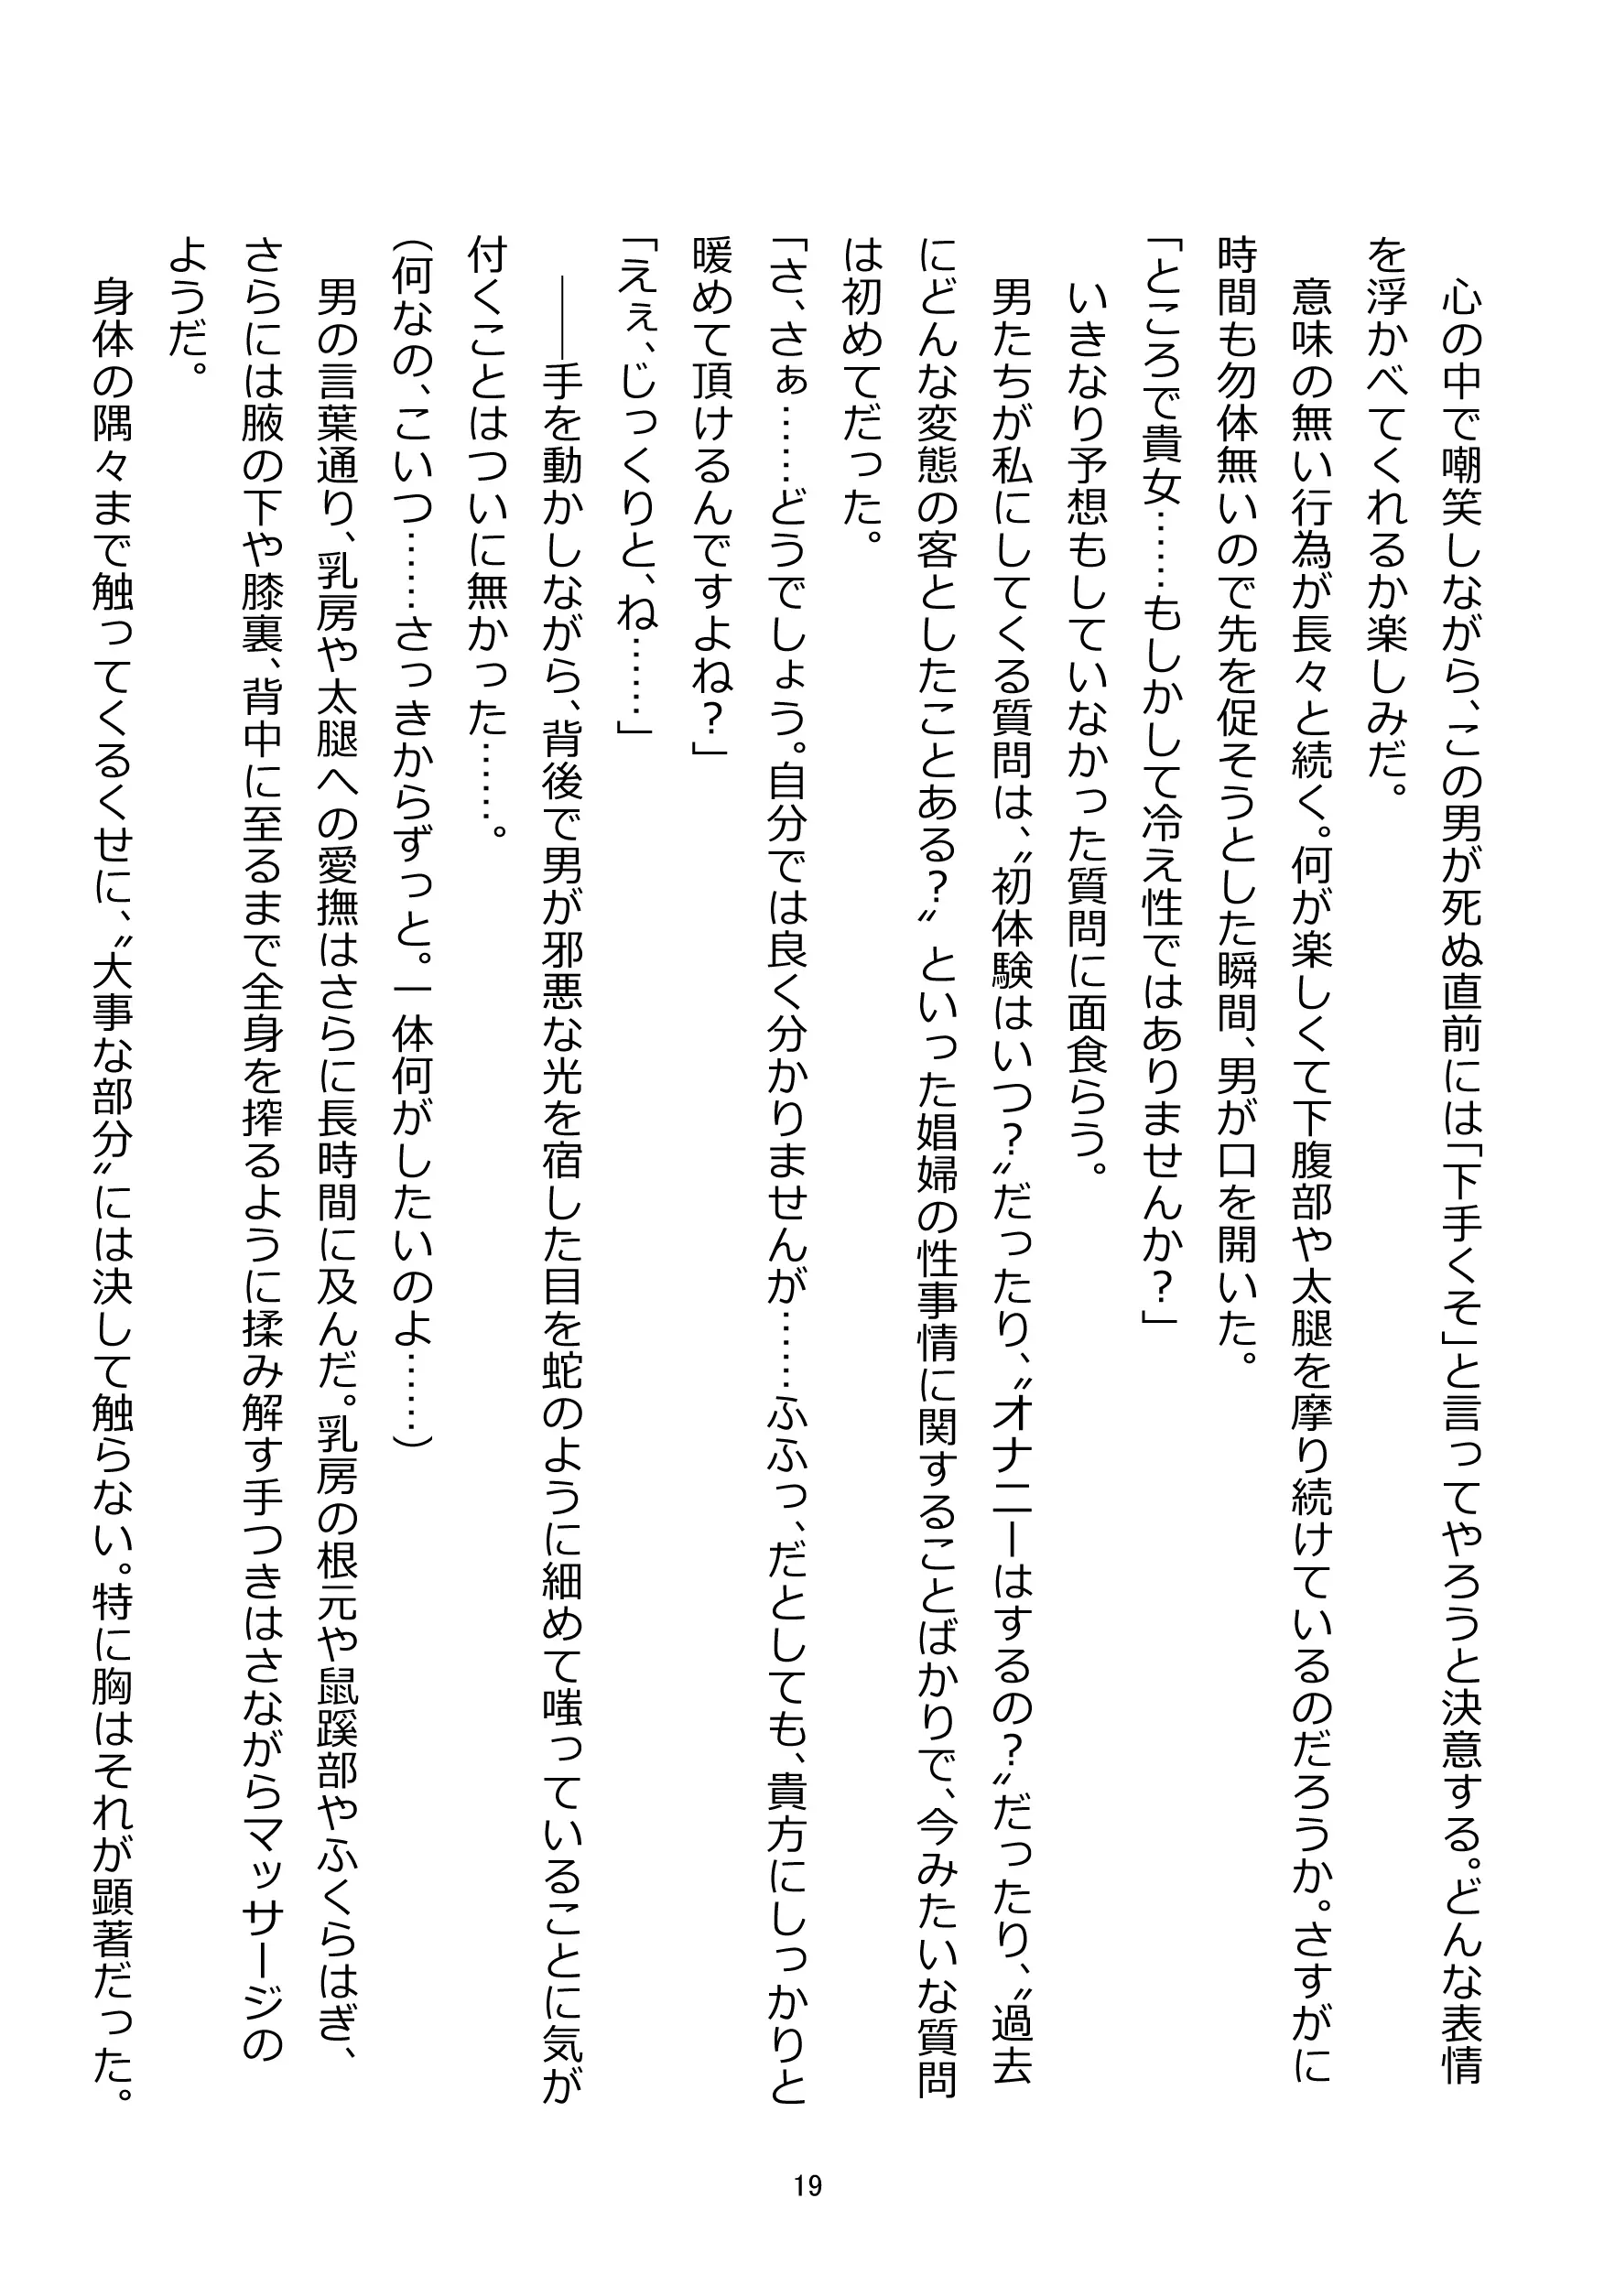 心の中で嘲笑しながら、この男が死ぬ直前には「下手くそ」と言ってやろうと決意する。どんな表情
を浮かべてくれるか楽しみだ。
意味の無い行為が長々と続く。何が楽しくて下腹部や太腿を摩り続けているのだろうか。さすがに
時間も勿体無いので先を促そうとした瞬間、男が口を開いた。
「ところで貴女……もしかして冷え性ではありませんか？」
いきなり予想もしていなかった質問に面食らう。
男たちが私にしてくる質問は、〝初体験はいつ？〟だったり、〝オナニーはするの？〟だったり、〝過去
にどんな変態の客としたことある？〟といった娼婦の性事情に関することばかりで、今みたいな質問
は初めてだった。
「さ、さぁ……どうでしょう。自分では良く分かりませんが……ふふっ、だとしても、貴方にしっかりと
暖めて頂けるんですよね？」
「えぇ、じっくりと、ね……」
――手を動かしながら、背後で男が邪悪な光を宿した目を蛇のように細めて嗤っていることに気が
付くことはついに無かった……。
（何なの、こいつ……さっきからずっと。一体何がしたいのよ……）
男の言葉通り、乳房や太腿への愛撫はさらに長時間に及んだ。乳房の根元や鼠蹊部やふくらはぎ、
さらには腋の下や膝裏、背中に至るまで全身を搾るように揉み解す手つきはさながらマッサージの
ようだ。
身体の隅々まで触ってくるくせに、〝大事な部分〟には決して触らない。特に胸はそれが顕著だった。
19